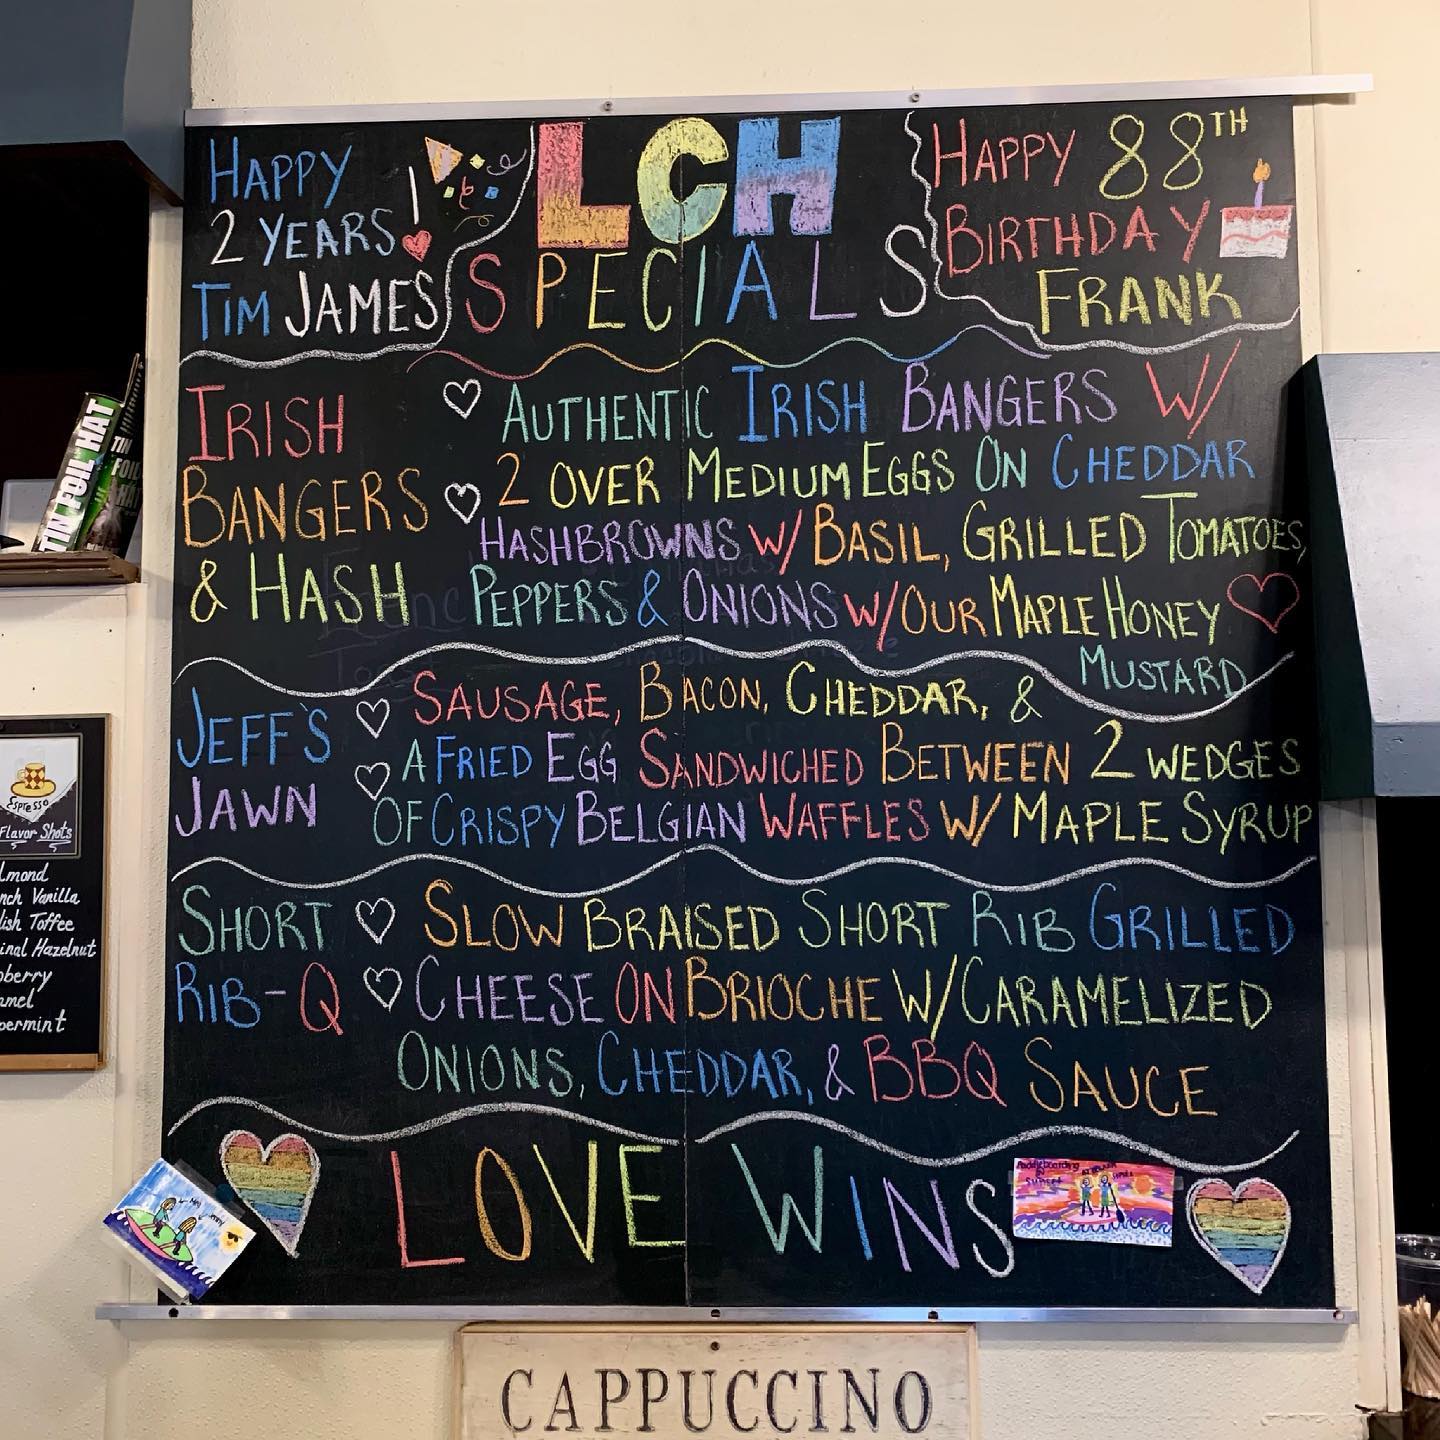 HAPPY
2 YEARS!
TIM JAMES
LCH
SPECIALS
HAPPY 88TH
BIRTHDAY
FRANK
IRISH
BANGERS
& HASH
AUTHENTIC IRISH BANGERS W/
2 OVER MEDIUM EGGS ON CHEDDAR
HASHBROWNS W/ BASIL, GRILLED TOMATOES,
PEPPERS & ONIONS W/ OUR MAPLE HONEY
MUSTARD
JEFF'S
JAWN
SAUSAGE, BACON, CHEDDAR, &
A FRIED EGG SANDWICHED BETWEEN 2 WEDGES
OF CRISPY BELGIAN WAFFLES W/ MAPLE SYRUP
SHORT
RIB-Q
SLOW BRAISED SHORT RIB GRILLED
CHEESE ON BRIOCHE W/ CARAMELIZED
ONIONS, CHEDDAR, & BBQ SAUCE
LOVE WINS
Paddleboarding
SUNSET
CAPPUCCINO
TIN FOIL HAT
TIN FOIL HAT
Espresso
Flavor Shots
lmond
nch Vanilla
lish Toffee
inal Hazelnut
pberry
amel
permint